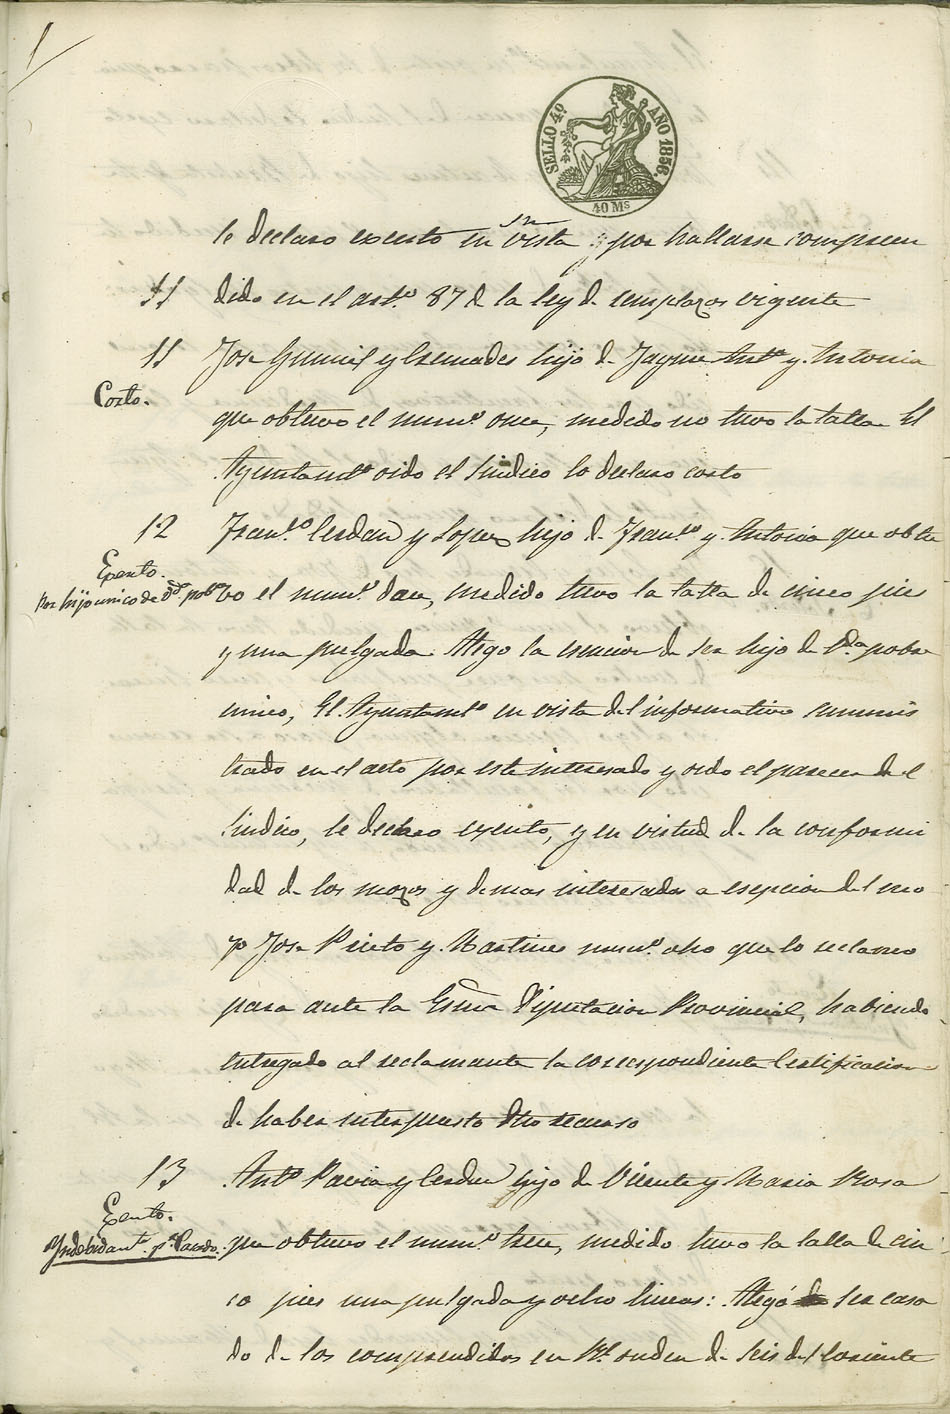 1
SELLO 4º AÑO 1856.
40 Ms
le declaro exento en su vista y por hallarse compren
11 dido en el artº 87 de la ley de remplazos vigente
11 Jose Gumiel y Cremades hijo de Jayme Antº y Antonia
Corto.
que obtuvo el numº once, medido no tuvo la talla El
Ayuntamtº oido el Sindico lo declaro corto
12 Franºº Cerdan y Lopez hijo de Franºº y Antonia que obtu
Exento.
Por hijo unico de Vdª pobre
vo el numº doce, medido tuvo la talla de cinco pies
y una pulgada. Alego la esencion de ser hijo de Vda pobre
unico, El Ayuntamtº en vista del informativo suminis
trado en el acto por este interesado y oido el parecer del
Sindico, le declaro exento, y en virtud de la conformi
dad de los mozos y demas interesados a esepcion del mo
zo Jose Prieto y Martines numº ocho que lo reclamo
para ante la Esma Diputacion Provincial, habiendo
entregado al reclamante la correspondiente Certificacion
de haber interpuesto dho recurso
13 Antº Pavia y Cerdan hijo de Vicente y Maria Rosa
Exento.
Yndebidamt. pr Casado.
que obtuvo el numº trece, medido tuvo la talla de cin
co pies una pulgada y ocho lineas: Alegó ser casa
do de los comprendidos en Rl. orden de seis del corriente